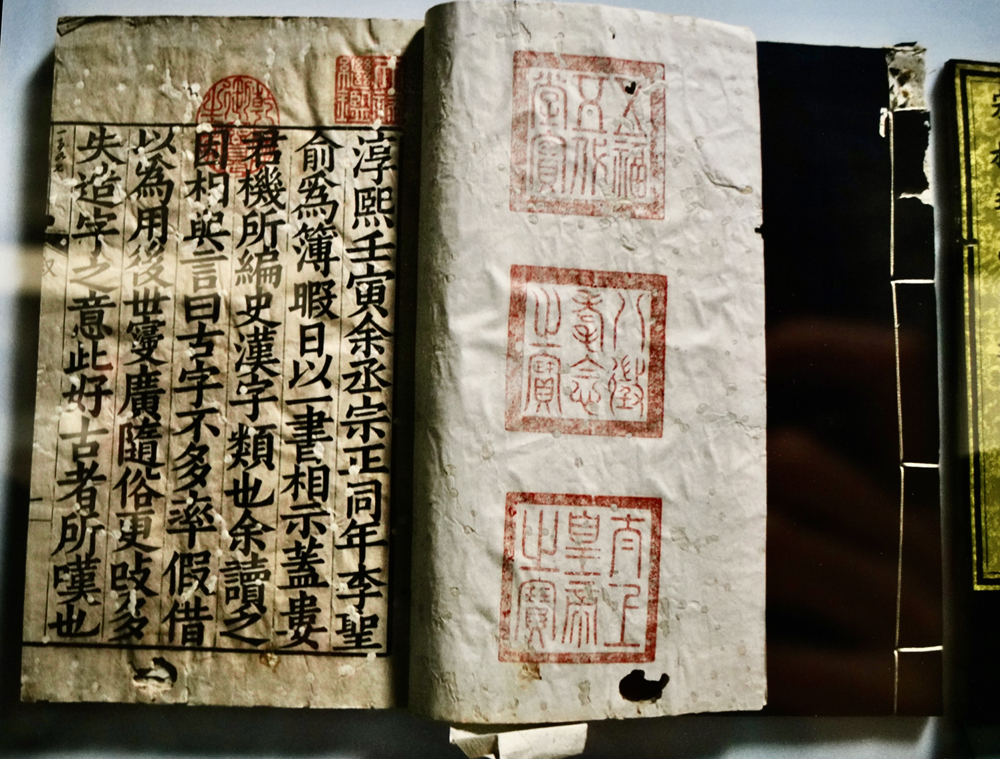 五福
五代
堂寶
八徵
耄念
之寶
太上
皇帝
之寶
天祿
繼鑑
乾隆御覽之寶
淳熙壬寅余丞宗正同年李聖
俞爲簿暇日以一書相示蓋婁
君機所編史漢字類也余讀之
因相與言曰古字不多率假借
以為用後世寖廣隨俗更改多
失造字之意此好古者所嘆也